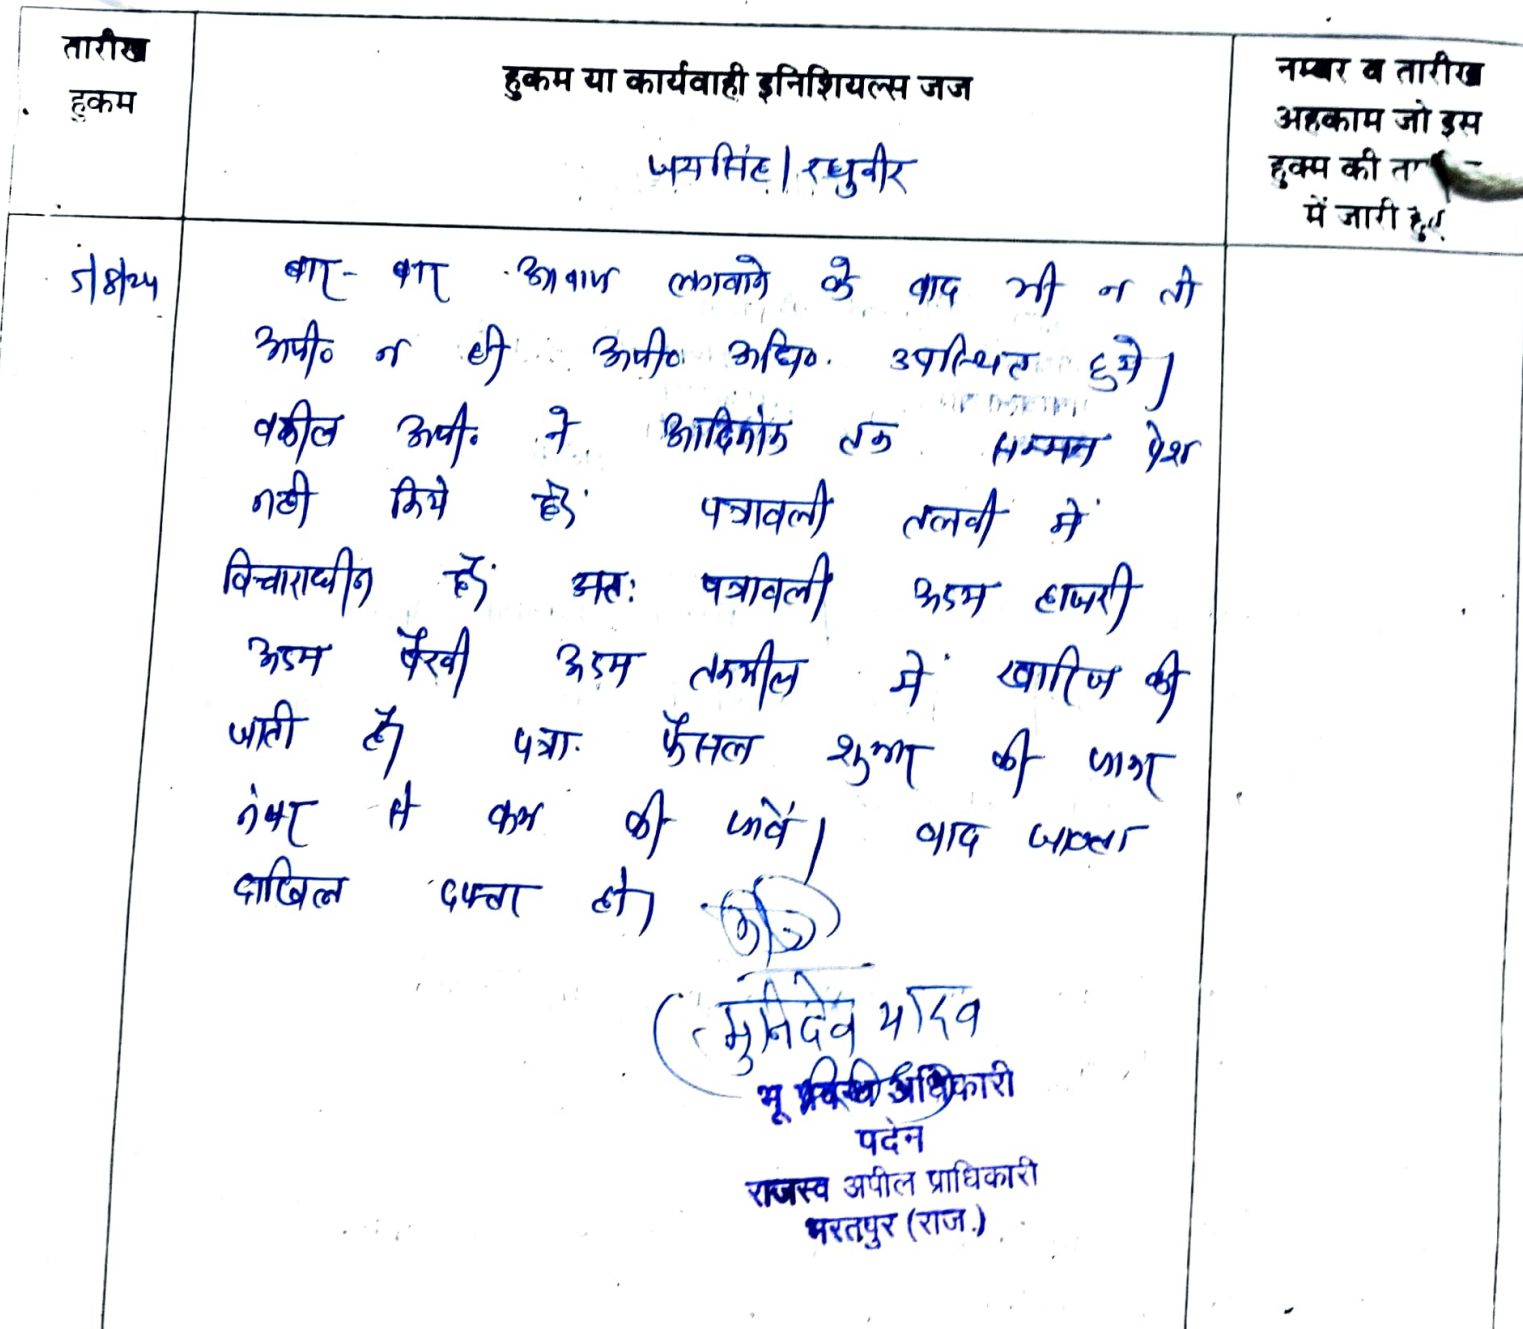 तारीख
हुकम
हुकम या कार्यवाही इनिशियल्स जज
जयसिंह | रघुवीर
नम्बर व तारीख
अहकाम जो इस
हुक्म की
में जारी हुए
5/8/24
बार - बार आवाज लगवाने के बाद भी न तो
अपी० न ही अपी० अधि०. उपस्थित हुये।
वकील अपी० ने आदिनांक तक सम्मन पेश
नही किये हैं। पत्रावली तलवी में
विचाराधीन हैं। अतः पत्रावली अदम हाजरी
अदम पैरवी अदम तकमील में खारिज की
जाती है। पत्रा. फैसल शुमार की जाकर
नंबर से कम की जावें। वाद जाब्ता
दाखिल दफ्तर हो।
(मुनिदेव यादव
भू अधिकारी
पदेन
राजस्व अपील प्राधिकारी
भरतपुर (राज.)